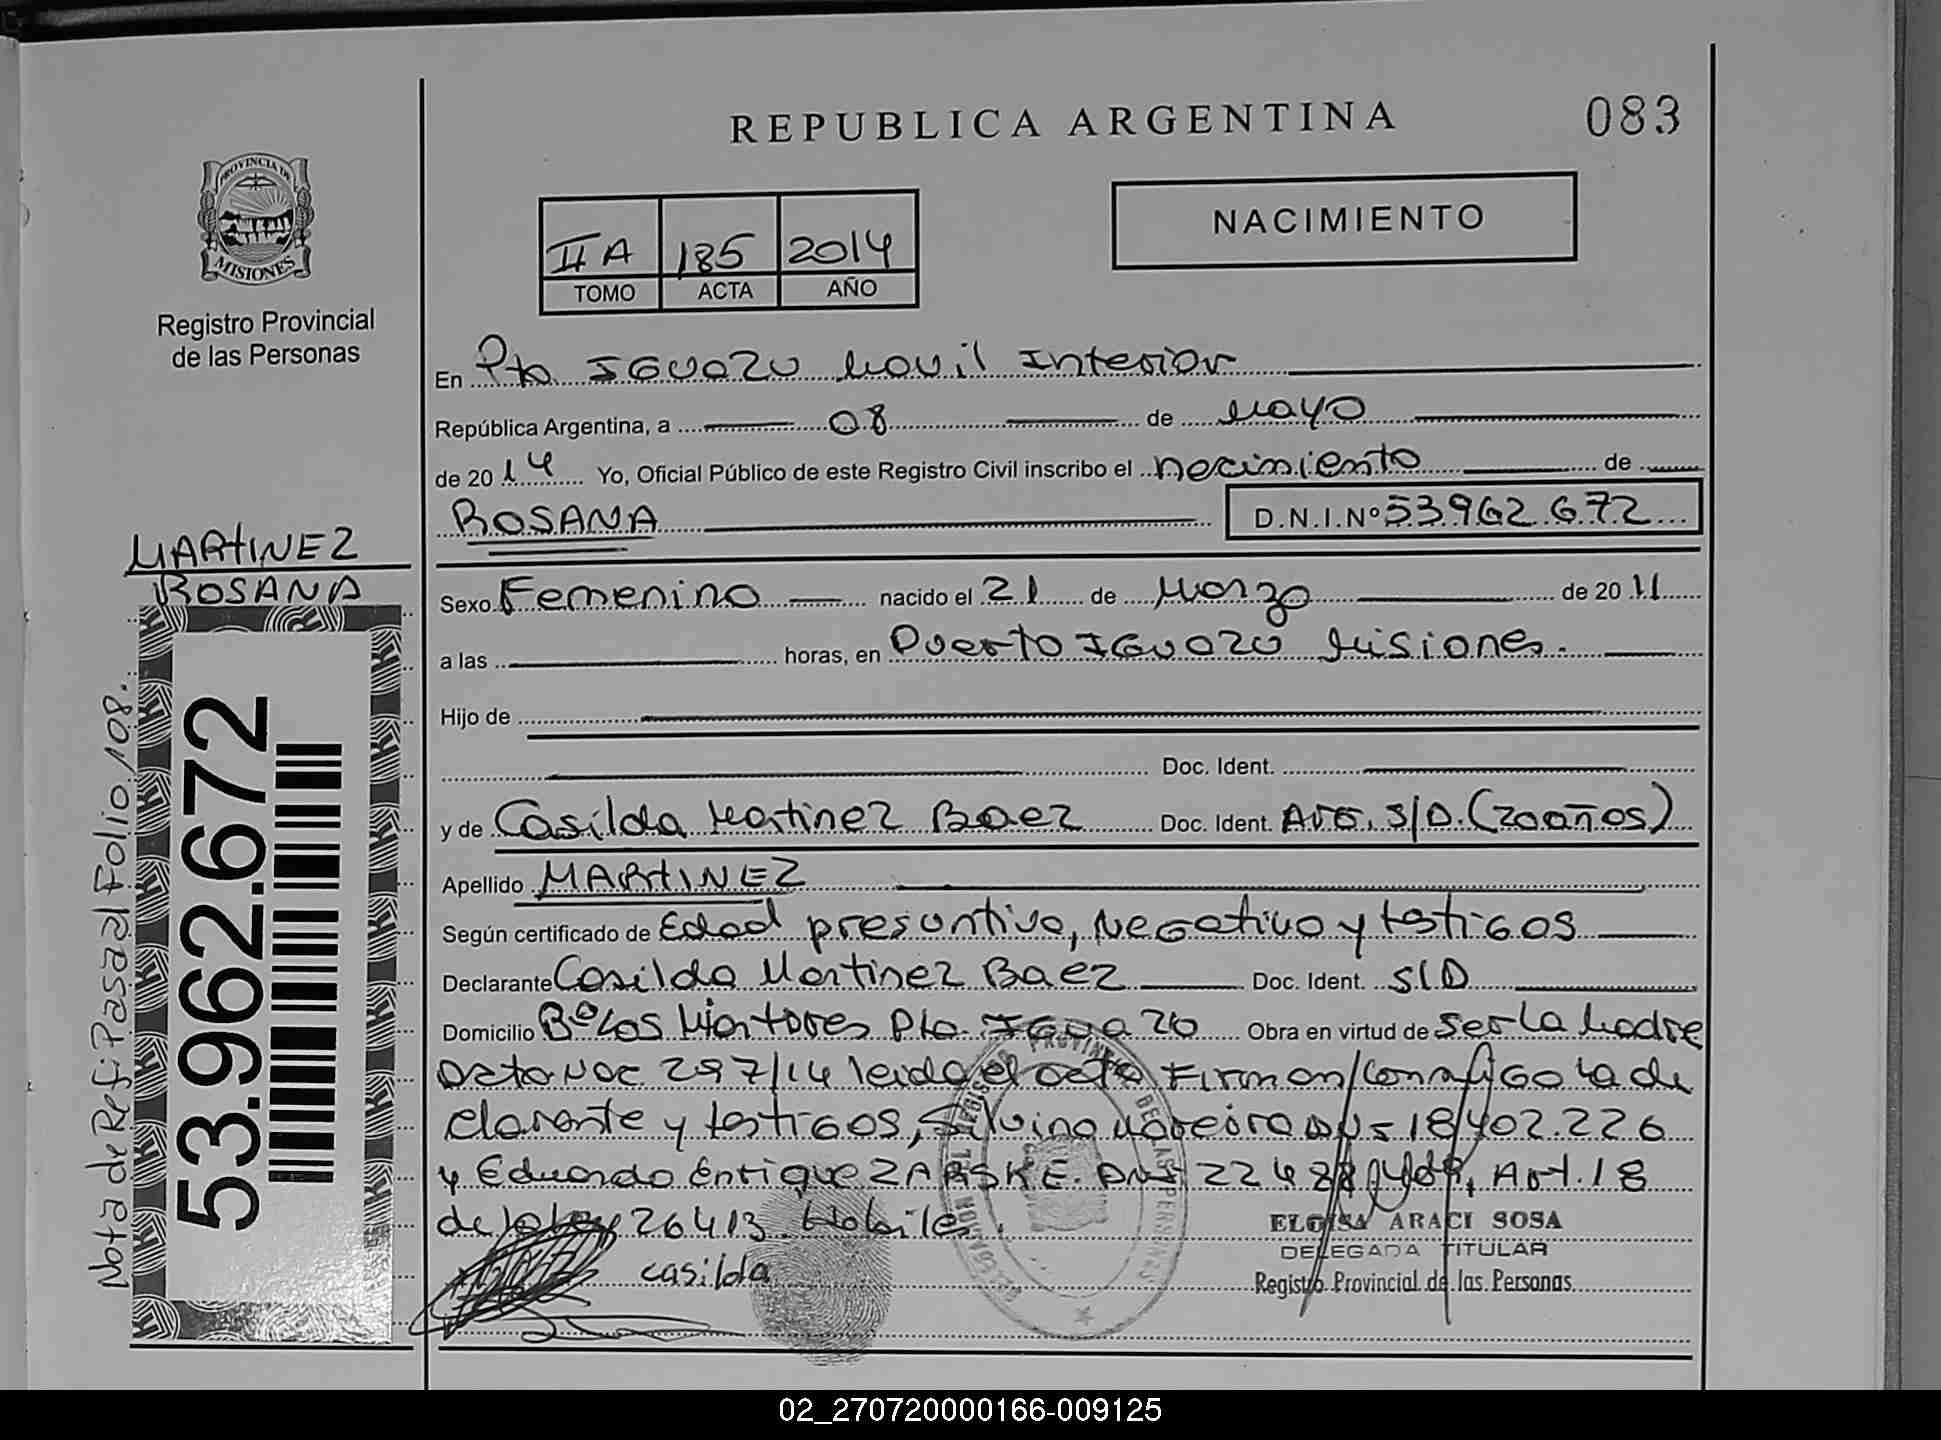 REPUBLICA ARGENTINA
083
PROVINCIA DE
MISIONES
Registro Provincial
de las Personas
II A 185 2014
TOMO ACTA AÑO
NACIMIENTO
En Pto IGUAZU Movil Interior
República Argentina, a 08 de Mayo
de 2014 Yo, Oficial Público de este Registro Civil inscribo el nacimiento de
ROSANA
D.N.I.Nº 53.962.672
MARTINEZ
ROSANA
Sexo Femenino nacido el 21 de Marzo de 2011
a las horas, en Puerto IGUAZU Misiones.
Hijo de
Doc. Ident.
y de Casilda Martinez Baez Doc. Ident. S/D. (20 años)
Apellido MARTINEZ
Según certificado de Edad presuntiva, Negativo y testigos
Declarante Casilda Martinez Baez Doc. Ident. S/D
Domicilio Bº Los Pto. IGUAZU Obra en virtud de ser La Madre
297/14 leida el acta Firman/conmigo La de
clarante y testigos, Silvino DNI= 18.402.226
y Eduardo Enrique ZARSKE. DNI Art. 18
de la Ley 26413.
casilda
ELOISA ARACI SOSA
DELEGADA TITULAR
Registro Provincial de las Personas
53.962.672
Nota de Ref: Pasa al Folio 108.
02_270720000166-009125